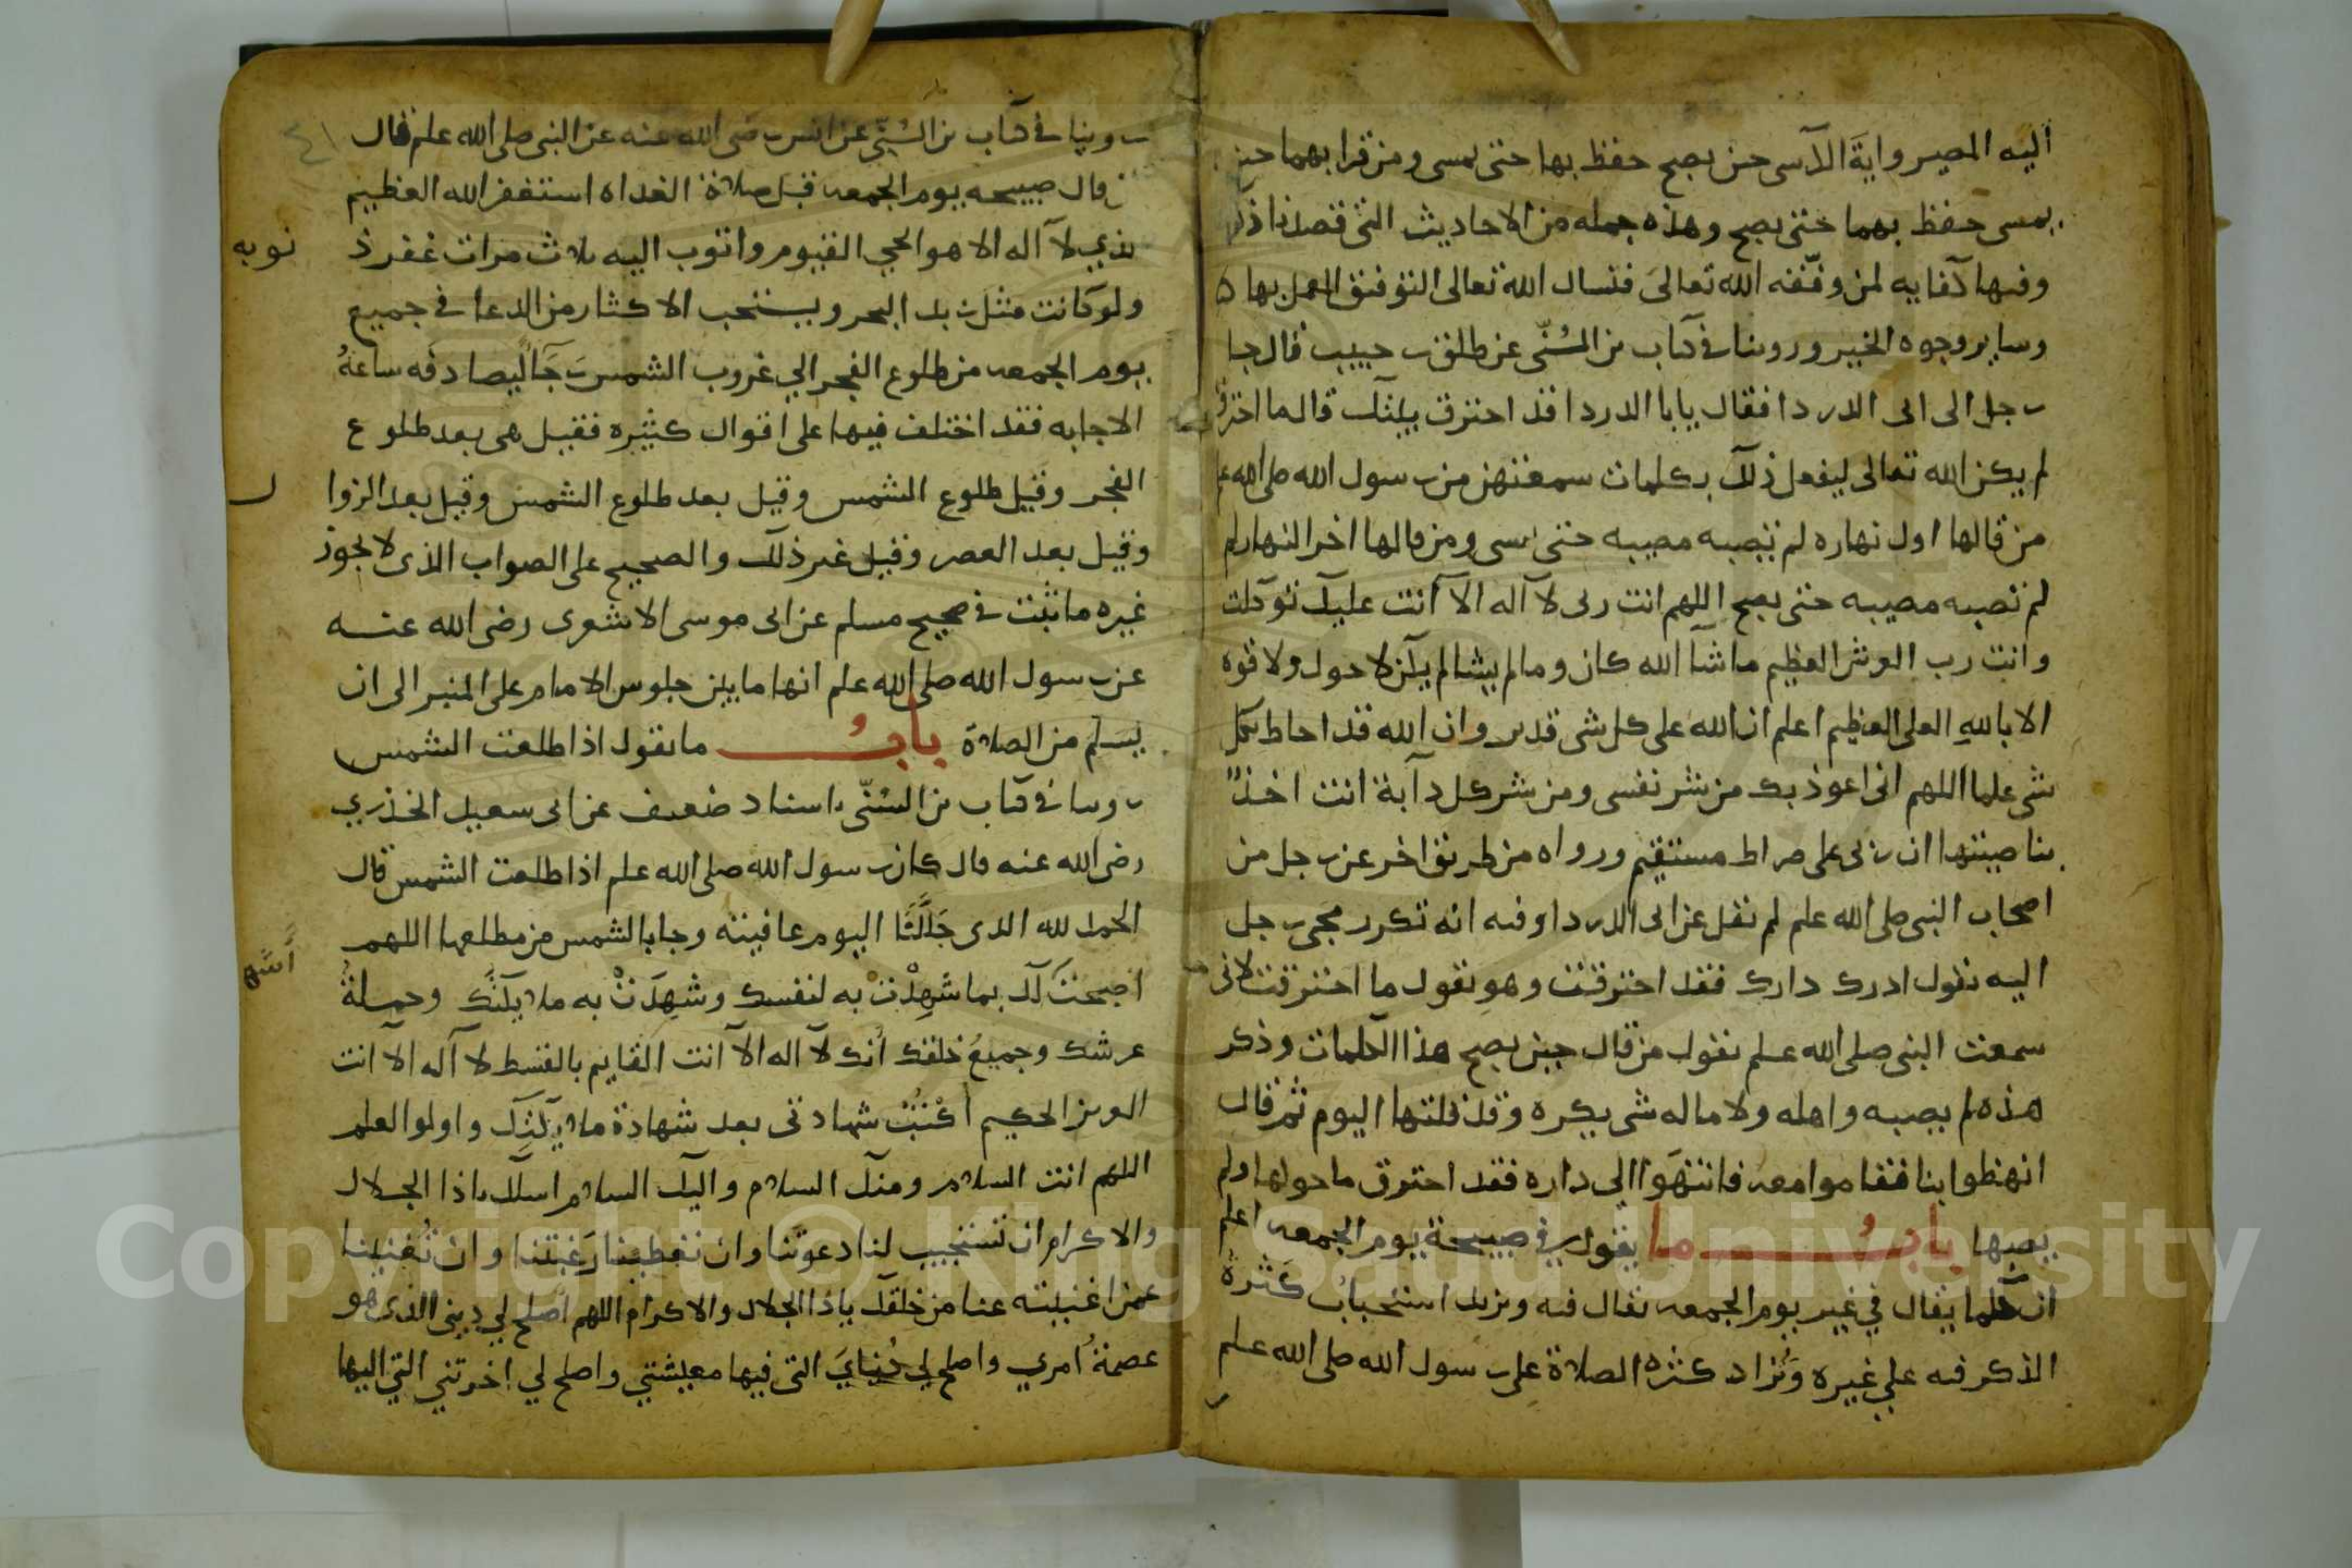 اليه المصير واية الآسى حىن يصبح حفظ بها حتى يمسى ومن قرا بهما حين
يمسى حفظ بهما حتى يصبح وهذه جمله من الاحاديث التى قصدنا ذكر
وفىها كفايه لمن وفّقه الله تعالى فنسال الله تعالى التوفىق العمل بها ه
وساير وجوه الخير وروىنا فى كتاب بن السُنّى عن طلق بن حبيب قال جا
رجل الى ابى الدردا فقال يابا الدردا قد احترق بيتك قال ما احترق
لم يكن الله تعالى ليفعل ذلك بكلمات سمعتهن من رسول الله صلى الله علم
من قالها اول نهاره لم تصبه مصيبه حتى ىمسى ومن قالها اخر النهار لم
لم تصبه مصيبه حتى يصبح اللهم انت ربى لا اله الا أنت عليك توكلت
وانت رب العرش العظيم ما شآ الله كان وما لم يشا لم يكن لا حول ولا قوه
الا بالله العلى العظيم اعلم ان الله على كل شى قدير وان الله قد احاط بكل
شى علما اللهم انى اعوذ بك من شر نفسى ومن شر كل دآبة انت اخذٌ
بناصيتها ان ربى على صراط مستقيم ورواه من طريق اخر عن رجل من
اصحاب النبى صلى الله علم لم نقل عن ابى الدردا وفىه انه تكرر مجى رجل
اليه ىقول ادرك دارك فقد احترقت وهو ىقول ما احترقت لانى
سمعت النبى صلى الله علم ىقول من قال حين يصبح هذا الكلمات وذكر
هذه لم يصبه واهله ولا ماله شى يكره وقد قلتها اليوم ثم قال
انهظوا بنا فقاموا معه فانتهَوا الى داره فقد احترق ما حولها ولم
يصبها بابُ ما يقول فى صبيحة يوم الجمعه اعلم
ان كلما يقال في غير يوم الجمعه ىقال فىه ويزىد استحبابُ كَثرة
الذكر فىه علي غيره وَتُزاد كثرة الصلاة على رسول الله صلى الله علم
ر
٤١
روينا فى كتاب بن السُنّي عن انس رضى الله عنه عن النبى صلى الله علم قال
من قال صبيحه يوم الجمعه قبل صلاة الغداه استغفر الله العظيم
الذي لا اله الا هو الحي القيوم واتوب اليه ىلاث مرات غفر ذ
نوبه
ولو كانت مثل زبد البحر ويستحب الاكثار من الدعا فى جميع
يوم الجمعه من طلوع الفجر الي غروب الشمس رَجَآ ليصادفه ساعةُ
الاجابه فقد اختلف فيها على اقوال كثيره فقيل هى بعد طلوع
الفجر وقيل طلوع الشمس وقيل بعد طلوع الشمس وقيل بعد الزوا
ل
وقيل بعد العصر وقيل غير ذلك والصحيح على الصواب الذى لا يجوز
غيره ما ثبت فى صحيح مسلم عن ابى موسى الاشعرى رضى الله عنه
عن رسول الله صلى الله علم انها ما بين جلوس الامام على المنبر الى ان
يسلم من الصلاة بابُ ما ىقول اذا طلعت الشمس
روىنا فى كتاب بن السُنّى باسناد ضعىف عن ابى سعيد الخذري
رضى الله عنه قال كان رسول الله صلى الله علم اذا طلعت الشمس قال
الحمد لله الذى جَلَّلَنَا اليوم عافيته وجا بالشمس من مطلعها اللهم
أشهد
اصبحت لك بما شَهِدْتَ به لنفسك وشَهِدَتْ به ملايكتك وحملةُ
عرشك وجميعُ خلقك أنك لا اله الا أنت القايم بالقسط لا اله الا أنت
العزيز الحكيم أُكْتُبْ شهادتى بعد شهادة ملايكتك واولو العلم
اللهم انت السلام ومنك السلام واليك السلام اسلك ىاذا الجلال
والاكرام ان تستجيب لنا دعوتنا وان تعطينا رَغبتنا وان تُغنينا
عمن اغنيته عنا من خلقك ياذا الجلال والاكرام اللهم أصلح لي دينى الذى هو
عصمةُ أمري واصلح لي دُنيايَ التى فيها معيشتي واصلح لي اخرتي التي اليها
Copyright © King Saud University